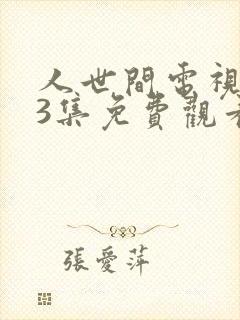 人世間電視
3集免費觀看
張愛萍